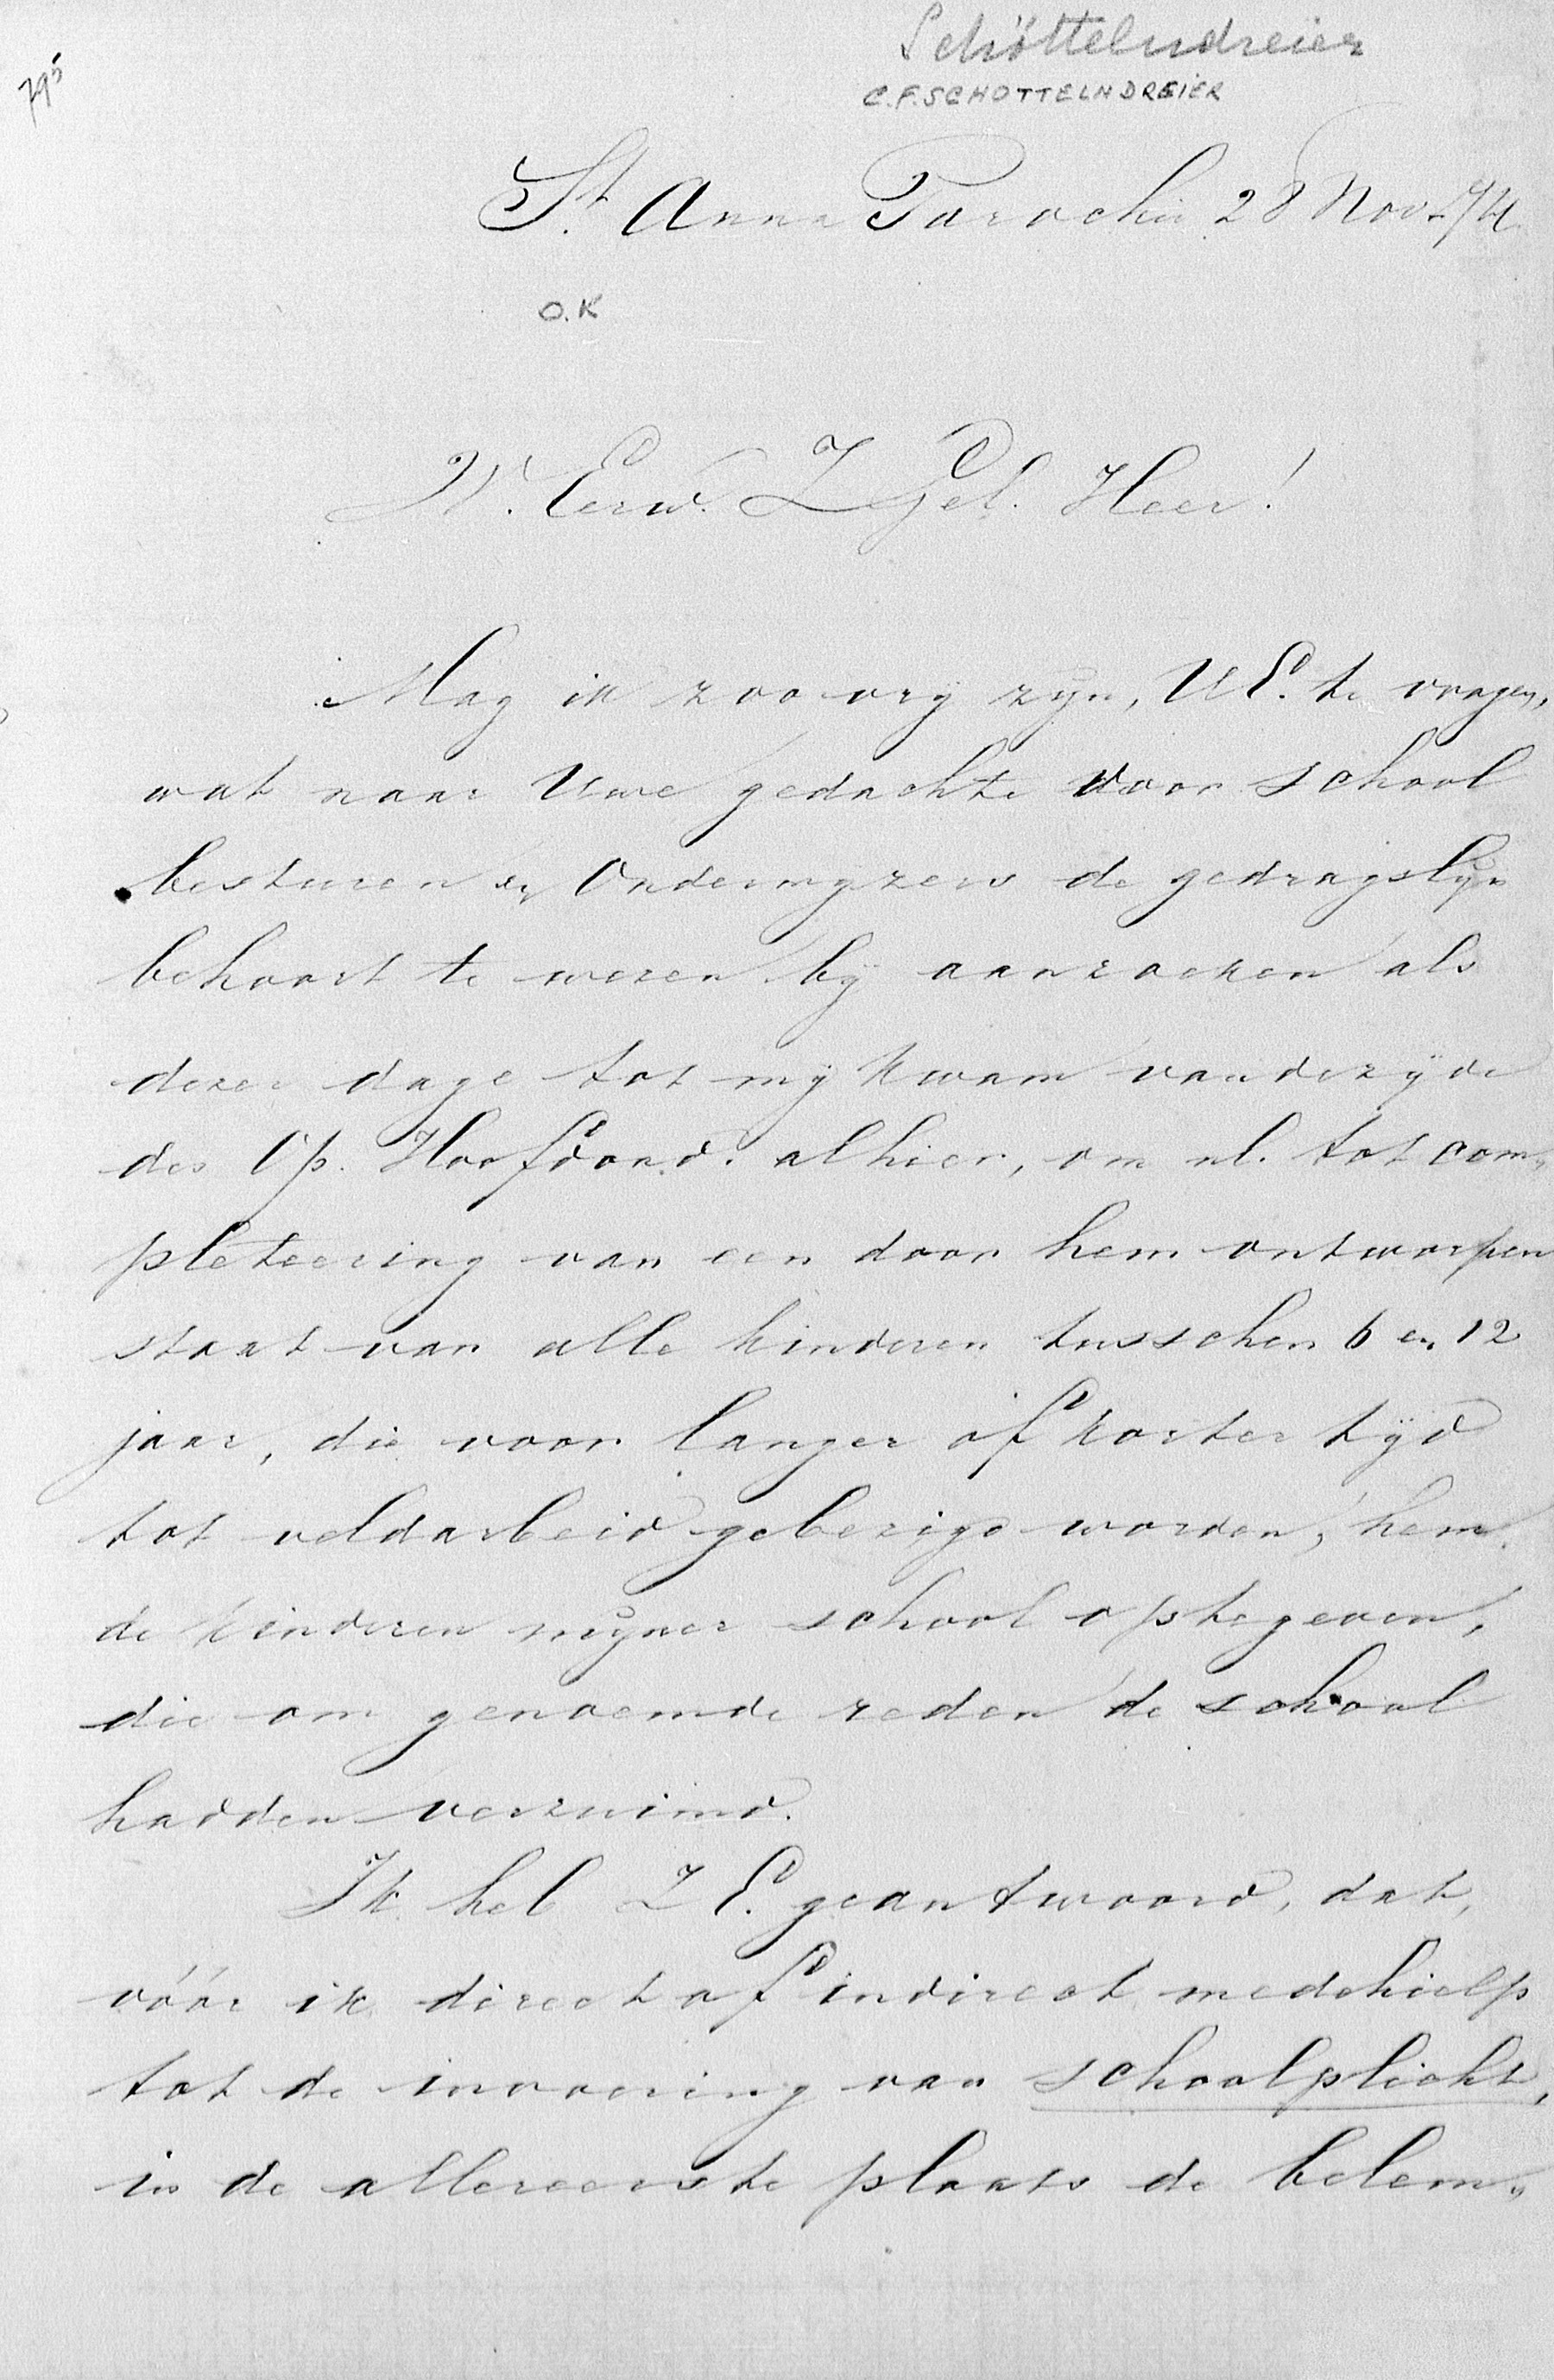 795
Schöttelndreier
C.F. SCHOTTELNDREIER
St. Anna Parochie 28 Nov. 74
O.K
W. Eerw. Z Gel. Heer!
Mag ik zoo vrij zijn, UE. te vragen,
wat naar Uwe gedachte voor school
besturen en Onderwijzers de gedragslijn
behoort te wezen bij aanzoeken als
dezer dage tot mij kwam van de zijde
des Op. Hoofdond. alhier, om nl. tot com„
pleteering van een door hem ontworpen
staat van alle kinderen tusschen 6 en 12
jaar, die voor langer of korter tijd
tot veldarbeid gebezigd worden, hem
de kinderen mijner school optegeven,
die om genoemde reden de school
hadden verzuimd.
Ik heb Z E. geantwoord, dat,
vóór ik direct of indirect medehielp
tot de invoering van schoolplicht,
in de allereerste plaats de belem„